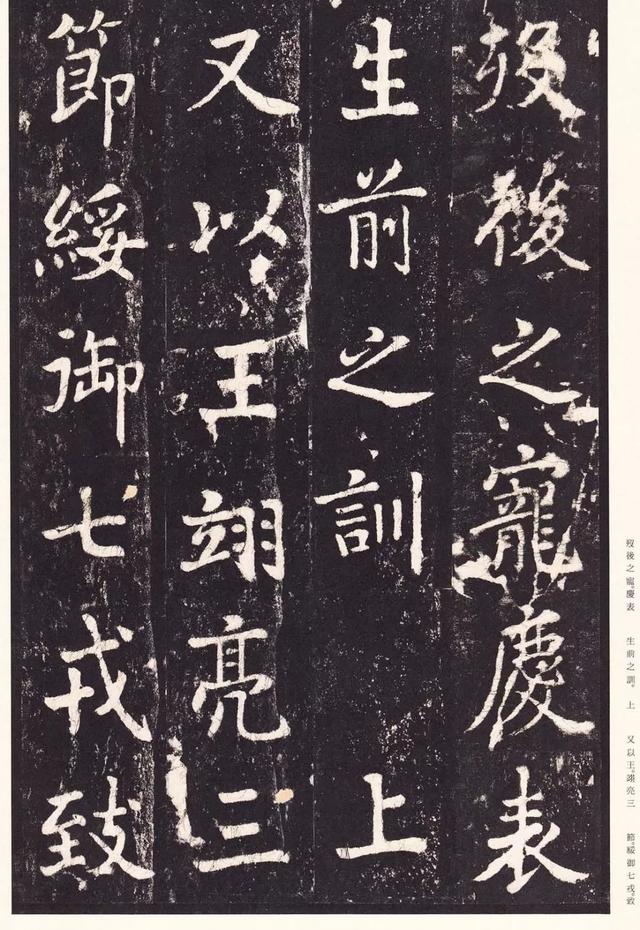 歿後之寵慶表
生前之訓 上
又以王翊亮三
節綏御七戎致
歿後之寵。慶表 生前之訓。上 又以王。翊亮三 節。綏御七戎。致